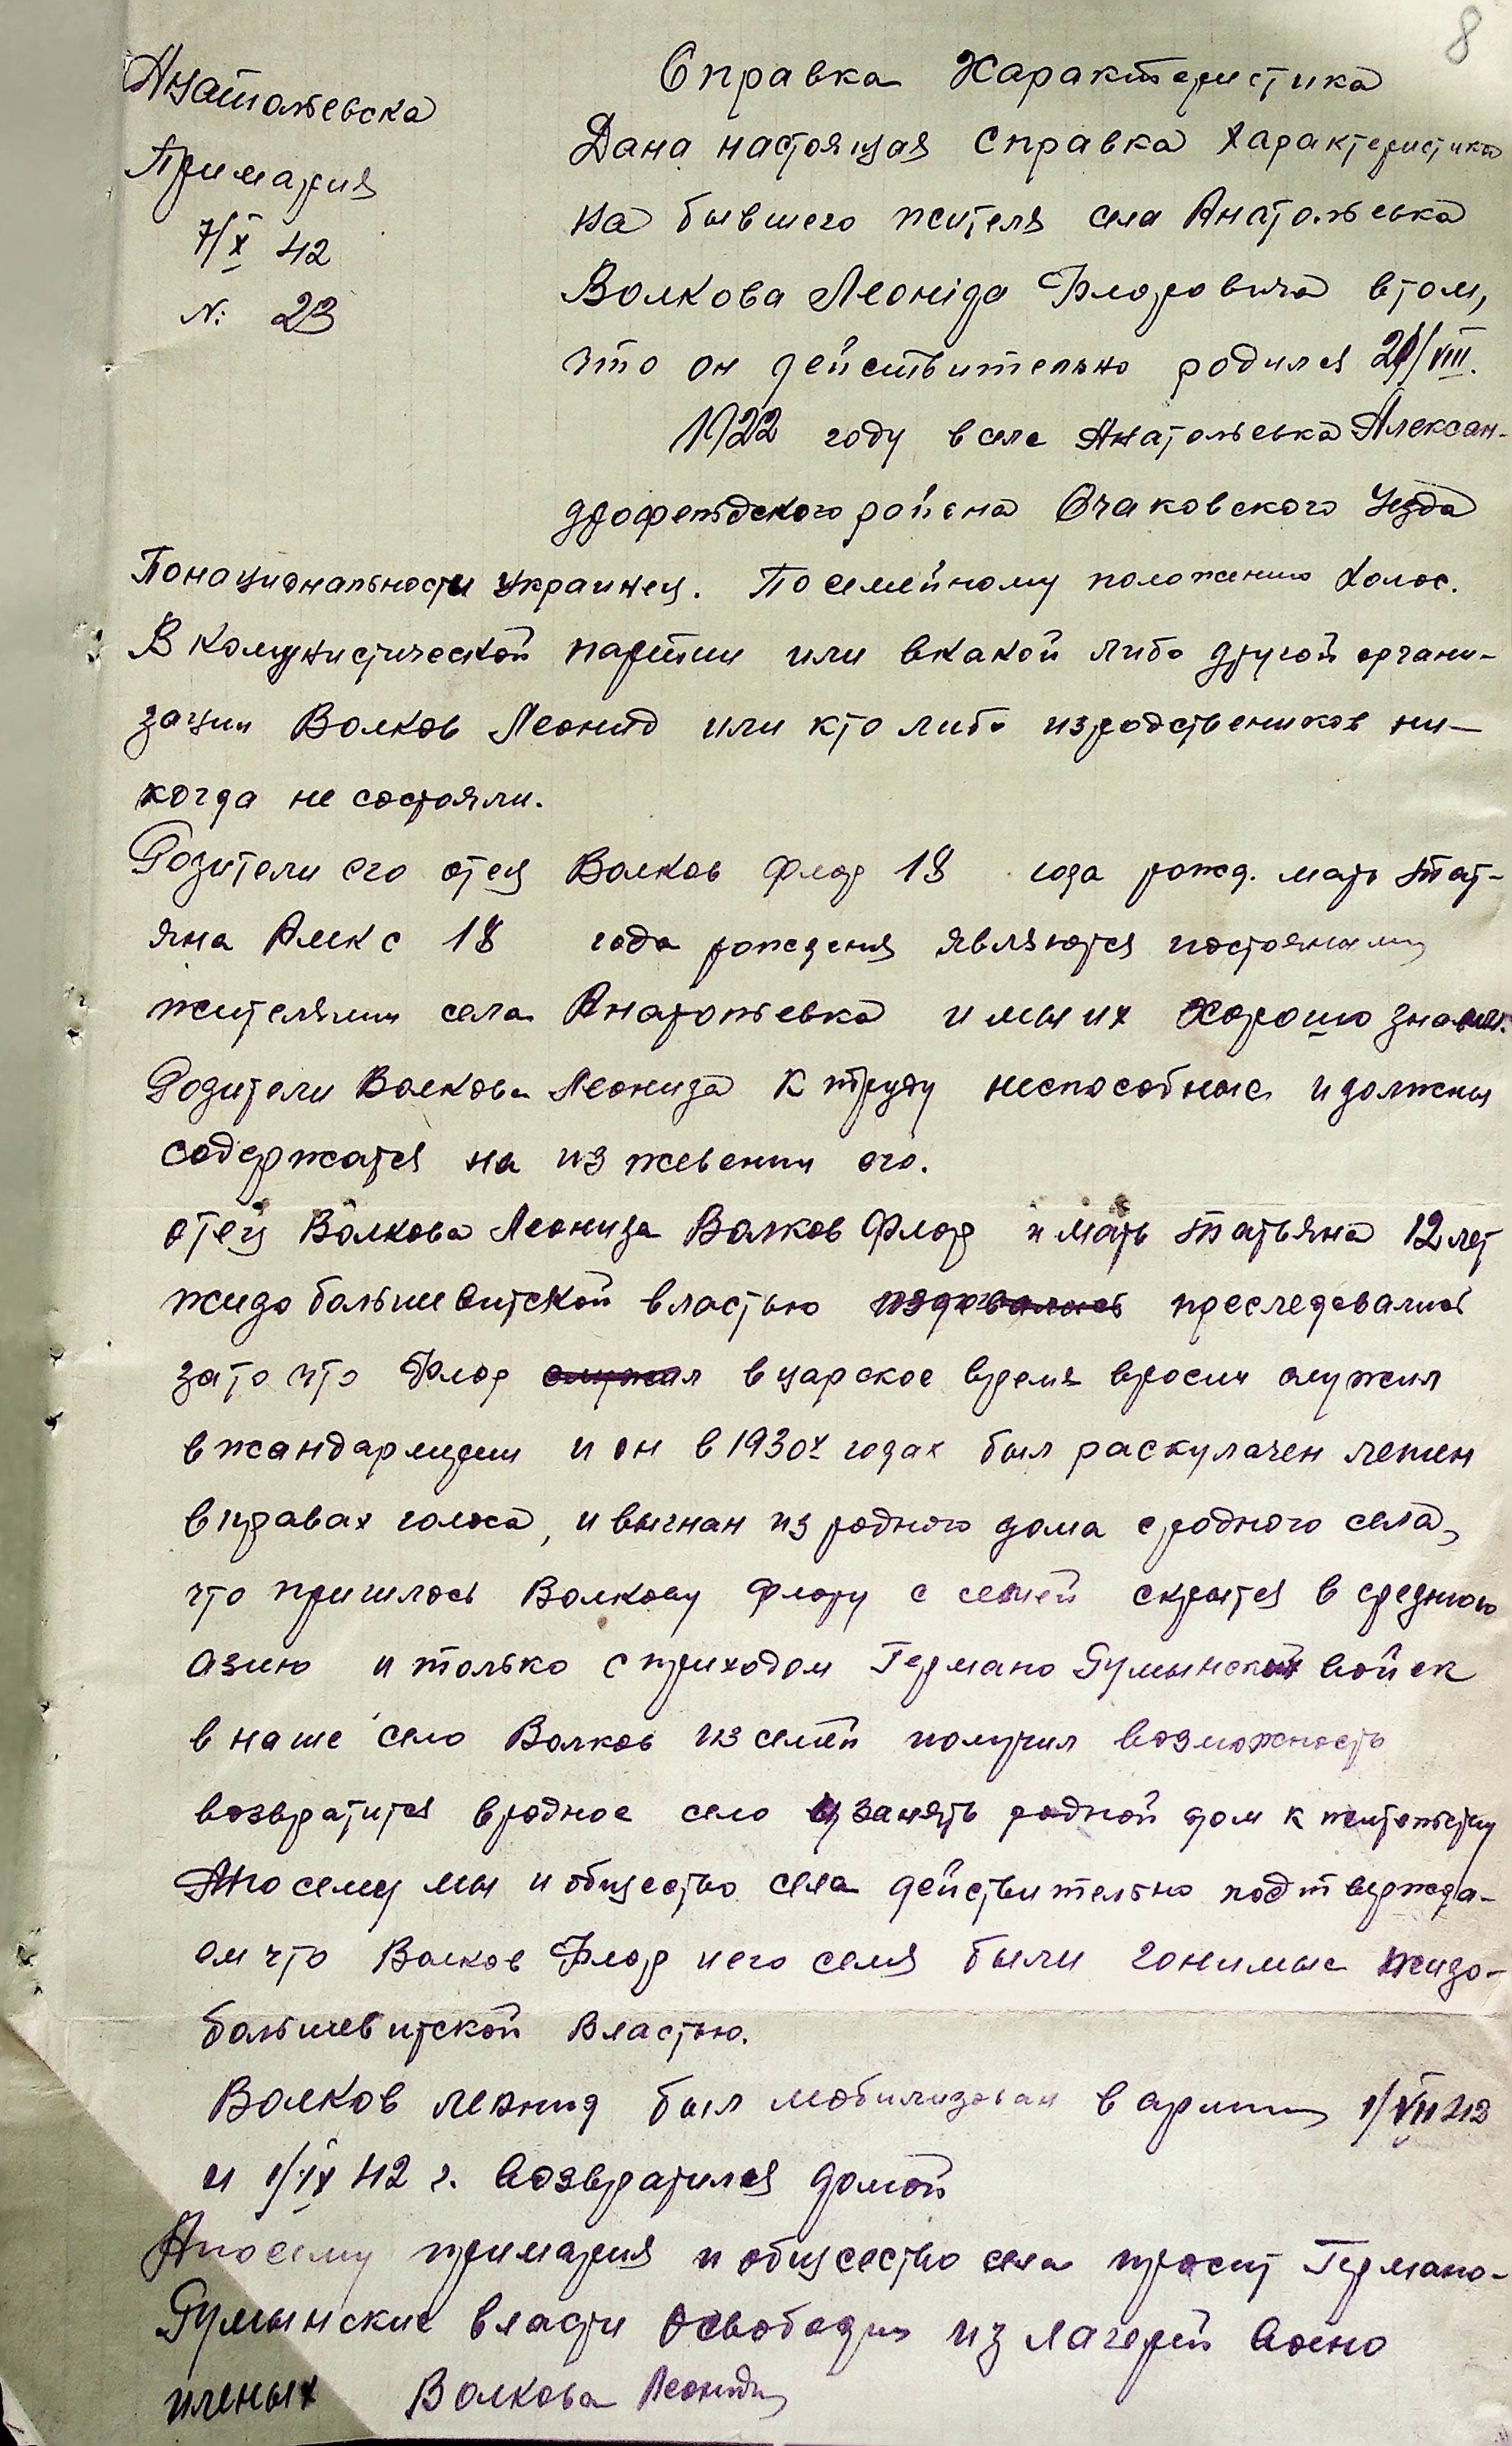 8
Анатольевска
Примария
7/X 42
N: 23
Справка Характеристика
Дана настоящая Справка Характеристика
на бывшего жителя села Анатольевка
Волкова Леоніда Флоровича втом,
что он действительно родился /VIII.
1922 году в селе Анатольевка Алексан-
дрофельдского района Очаковского Уезда
Понациональности Украинец. По семейному положению холос.
В Комунистической партии или вкакой либо другой органи-
зации Волков Леонид или кто либо изродствеников ни-
когда не состояли.
Родители его отец Волков Флор 18 года рожд. мать Тат-
яна Алекс 18 года рождения являются постоянными
жителями села Анатольевка и мы их хорошо знаем.
Родители Волкова Леонида к труду неспособные и должны
содержатся на из жевении его.
отец Волкова Леонида Волков Флор и мать Татьяна 12 лет
жидо большевитской властью преследовались
зато что Флор служил в царское время вросии служил
в жандармерии и он в 1930х годах был раскулачен лешен
в правах голоса, и выгнан из родного дома с родного села,
что пришлось Волкову Флору с семей скрытся в среднюю
азию и только с приходом Германо Румынских войск
в наше село Волков из семей получил возможность
возвратится вродное село и занять родной дом к жительству
Апосему мы и общество села действительно подтвержда-
ем что Волков Флор и его семя были гонимые жидо-
большевитской властью.
Волков леонид был мобилизован в армию 1/VII 42
и 1/IX 42 г. возвратился домой
Апосему примария и общсество села просит Германо-
Румынские власти освободить из лагерей воено
пленых Волкова Леонида